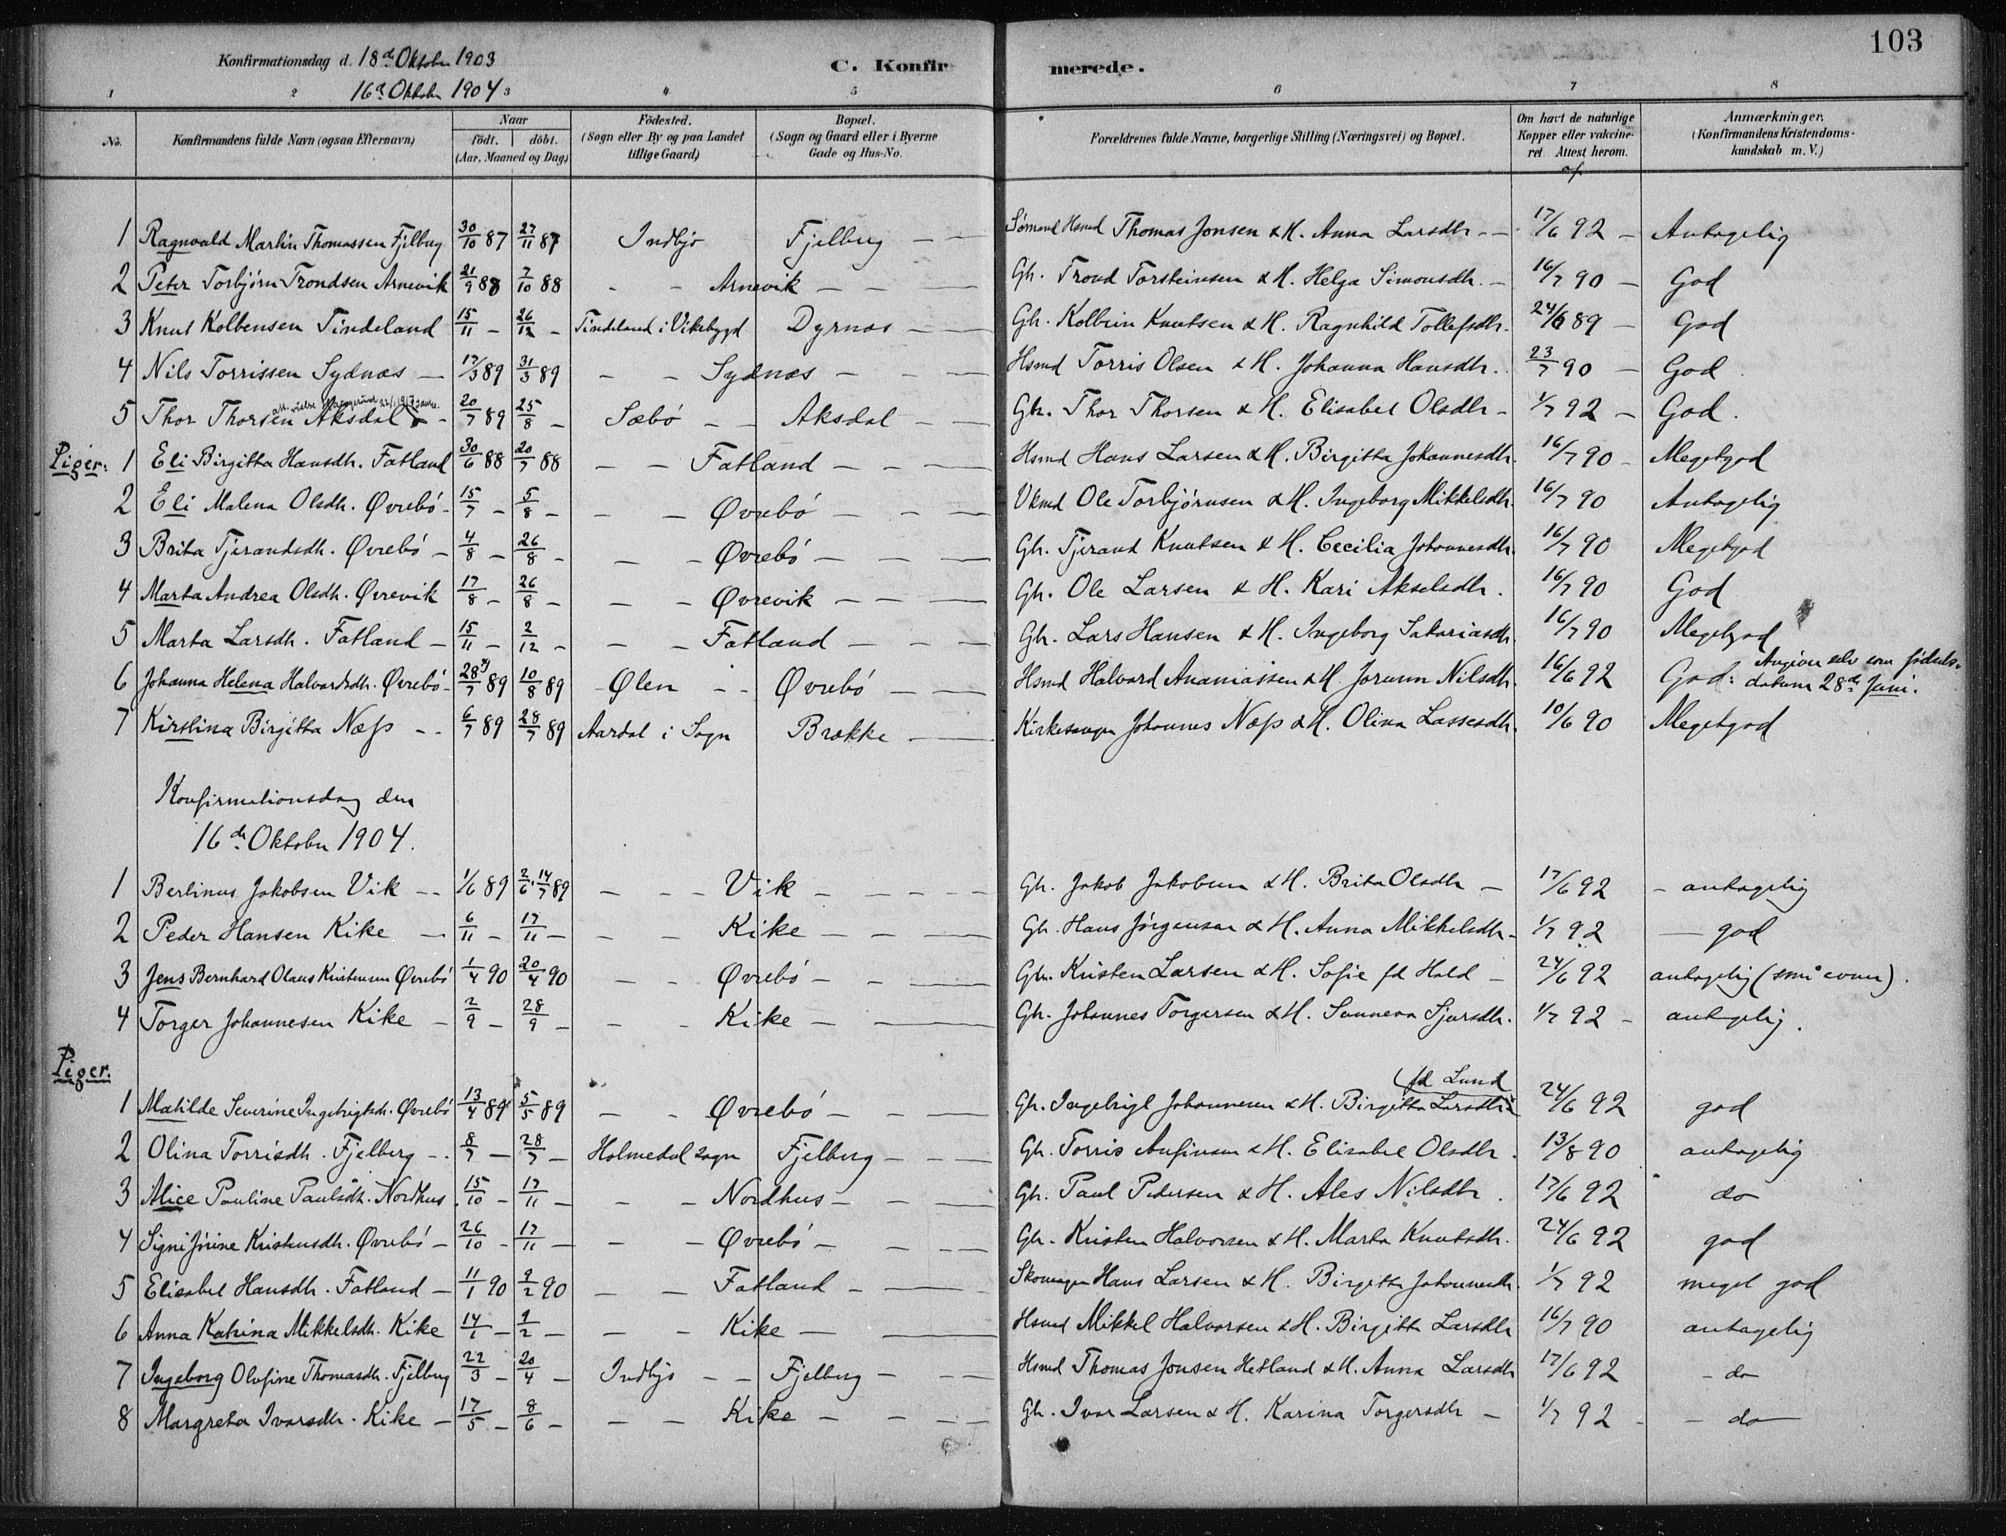 103
Konfirmationsdag d. 18de Oktober 1903
16de Oktober 1904
C. Konfirmerede.
1 2 3 4 5 6 7 8
No. Konfirmandens fulde Navn (ogsaa Efternavn) Naar født. døbt. (Aar, Maaned og Dag) Fødested. (Sogn eller By og paa Landet tillige Gaard) Bopæl. (Sogn og Gaard eller i Byerne Gade og Hus-No. Forældrenes fulde Navne, borgerlige Stilling (Næringsvei) og Bopæl. Om havt de naturlige Kopper eller vakcineret Attest herom. Anmærkninger. (Konfirmandens Kristendomskundskab m. V.)
1 Ragnvald Martin Thomassen Fjelberg 30/10 87 27/11 87 Indbjo Fjelberg — — Hsmd Thomas Jonsen & H. Anna Larsdtr — — 17/6 92 — Antagelig
2 Peter Torbjørn Trondsen Arnevik 21/9 88 7/10 88 - - Arnevik — — — Gbr. Trond Torsteinsen & H. Helga Simonsdtr. — 16/7 90 — God
3 Knut Kolbensen Tindeland 15/11 — 26/12 — Tindeland i Vikebygd Dyrnæs — — Gbr. Kolbein Knutsen & H. Ragnhild Tollefsdtr. 24/6 89 — God
4 Nils Torrissen Sydnæs — 17/3 89 31/3 89 - - Sydnæs - — — — Hsmd Torris Olsen & H. Johanna Hansdtr. 23/7 90 — God
5 Thor Thorsen Aksdal - 20/7 89 25/8 — Sæbø — — Aksdal — — Gbr. Thor Thorsen & H. Elisabet Olsdtr — 1/7 92 — God.
Piger: 1 Eli Birgitta Hansdtr. Fatland 30/6 88 20/7 88 — — Fatland — — — Hsmd Hans Larsen & H. Birgitta Johannesdtr. 16/7 90 — Megetgod
2 Eli Malena Olsdtr. Øvrebø - 15/7 — 5/8 — — — Øvrebø — — — Ole Torbjørnsen & H. Ingeborg Mikkelsdtr. 16/7 90 Antagelig
3 Brita Tjerandsdtr. Øvrebø — 4/8 — 26/8 — — - Øvrebø — — — Gbr. Tjerand Knutsen & H. Cecilia Johannesdtr. 16/7 90 Megetgod
4 Marta Andrea Olsdtr. Øvrevik 17/8 — 26/8 — — - Øvrevik — — — Gbr. Ole Larsen & H. Kari Akselsdtr. 16/7 90 God
5 Marta Larsdtr. Fatland — 15/11 — 2/12 — — - Fatland — — — Gbr. Lars Hansen & H. Ingeborg Sakariasdtr. 16/7 90 Megetgod
6 Johanna Helena Halvardsdtr. Øvrebø - 28/7 89 10/8 89 -Ølen - - Øvrebø — — — Hsmd Halvard Ananiassen & H. Jorunn Nilsdtr. 16/6 92 God: Angiver selv som fødselsdatum 28de Juni.
7 Kirstina Birgitta Næss - - 6/7 89 28/7 89 Aardal i Sogn Brække — — Kirkesanger Johannes Næss & H. Olina Lassesdtr. 10/6 90 Megetgod
Konfirmationsdag den
16de Oktober 1904.
1 Bertinus Jakobsen Vik - - 1/6 89 2/6. 14/7 89 — — - Vik — — — — Gbr. Jakob Jakobsen & H. Brita Olsdtr — 17/6 92 - antagelig
2 Peder Hansen Kike — 6/11 — 17/11 — — — Kike — — — — Gbr. Hans Jørgensen & H. Anna Mikkelsdtr — 1/7 92 — god
3 Jens Bernhard Olaus Kristensen Øvrebø 1/4 90 20/4 90 - - Øvrebø - — — Gbr. Kristen Larsen & H. Sofie fd Hald — 24/6 92 antagelig (små evner).
4 Torger Johannesen Kike — 2/9 — 28/9 — — - Kike — — — Gbr. Johannes Torgersen & H. Sunneva Sjursdtr. 1/7 92 - antagelig.
Piger.
1 Matilde Severine Ingebrigtsdtr. Øvrebø 13/4 89 5/5 89 — — Øvrebø — — — Gbr. Ingebrigt Johannesen & H. Birgitta Larsdtr fd Lund 24/6 92 god
2 Olina Torrisdtr. Fjelberg - . 8/7 — 28/7 — Holmedal Sogn Fjelberg — — — Gbr. Torris Anfinsen & H. Elisabet Olsdtr . 13/8 90 antagelig
3 Alice Pauline Paulsdtr. Nordhus 15/10 — 17/11 — — - Nordhus — — — Gbr. Paul Pedersen & H. Ales Nilsdtr . 17/6 92 do
4 Signi Jørine Kristensdtr. Øvrebø — 26/10 — 17/11 — — - Øvrebø — — — Gbr. Kristen Halvorsen & H. Marta Knutsdtr. 24/6 92 god
5 Elisabet Hansdtr. Fatland — 11/1 90 9/2 90 — — Fatland — — — Skomager Hans Larsen & H. Birgitta Johannesdtr. 1/7 92 meget god
6 Anna Katrina Mikkelsdtr. Kike 14/1 — 9/2 — — - Kike — — — Hsmd Mikkel Halvorsen & H. Birgitta Larsdtr 16/7 90 antagelig
7 Ingeborg Olufine Thomasdtr. Fjelberg 22/3 — 20/4 — Indbjo — — Fjelberg — — — Hsmd Thomas Jonsen Hetland & H. Anna Larsdtr 17/6 92 - do
8 Margreta Ivarsdtr. Kike — 17/5 — 8/6 — — — Kike — — — — Gbr. Ivar Larsen & H. Karina Torgersdtr — 1/7 92 - - do